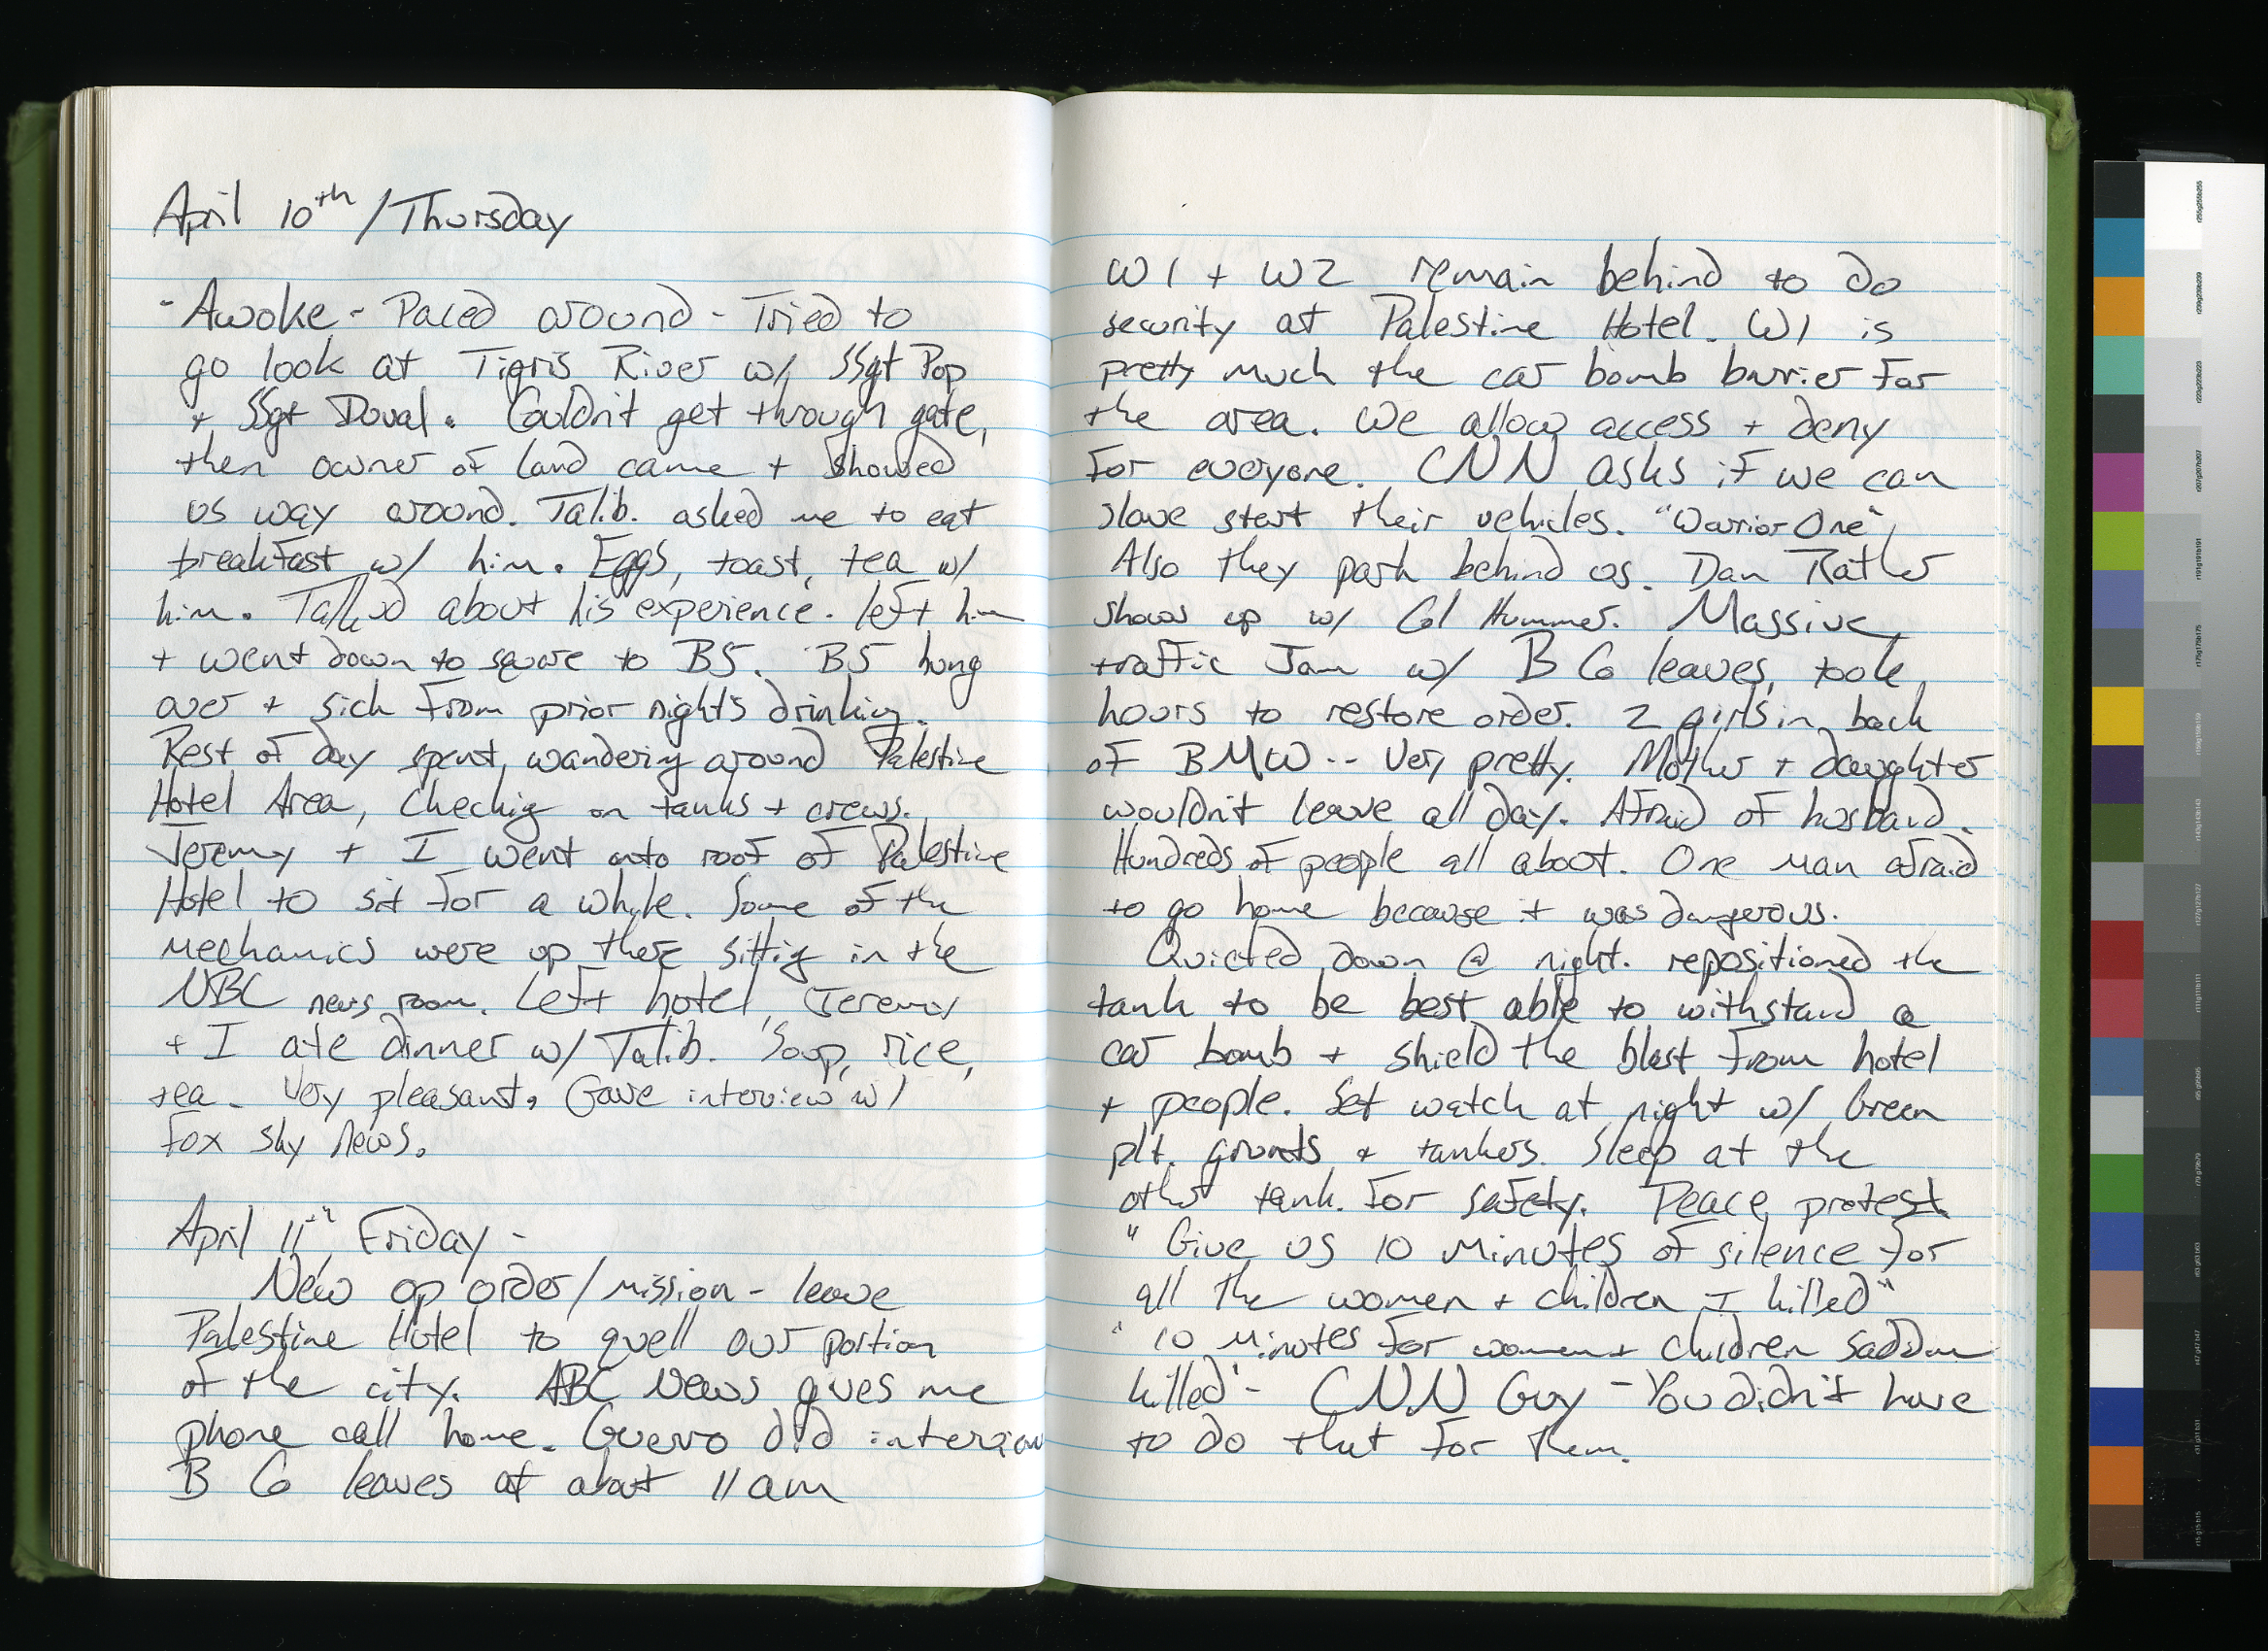 April 10th / Thursday
- Awoke - Paced around - Tried to
go look at Tigris River w/ SSgt Pop
+ SSgt Doval. Couldn't get through gate,
then owner of land came + showed
us way around. Talib. asked me to eat
breakfast w/ him. Eggs, toast, tea w/
him. Talked about his experience. left him
+ went down to square to B5. B5 hung
over + sick from prior nights drinking.
Rest of day spent, wandering around Palestine
Hotel Area, checking on tanks + crews.
Jeremy + I went onto roof of Palestine
Hotel to sit for a while. Some of the
mechanics were up there sitting in the
NBC news room. Left hotel, Jeremy
+ I ate dinner w/ Talib. Soup, rice,
tea. Very pleasant, Gave interview w/
Fox Sky News.
April 11th, Friday -
New op order/mission - leave
Palestine Hotel to quell our portion
of the city. ABC News gives me
phone call home. Guerro did interview
B Co leaves at about 11 am
W1 + W2 remain behind to do
security at Palestine Hotel. W1 is
pretty much the car bomb barrier for
the area. We allow access + deny
for everyone. CNN asks if we can
slave start their vehicles. "Warrior One",
Also they park behind us. Dan Rather
shows up w/ Col Hummer. Massive
traffic Jam w/ B Co leaves, took
hours to restore order. 2 girls in back
of BMW -- Very pretty. Mother + daughter
wouldn't leave all day. Afraid of husband.
Hundreds of people all about. One man afraid
to go home because it was dangerous.
Quieted down @ night. repositioned the
tank to be best able to withstand a
car bomb + shield the blast from hotel
+ people. Set watch at night w/ Green
plt. grunts + tankers. Sleep at the
other tank for safety. Peace protest
"Give us 10 minutes of silence for
all the women + children I killed"
"10 minutes for women + children Saddam
killed" - CNN Guy - You didn't have
to do that for them.